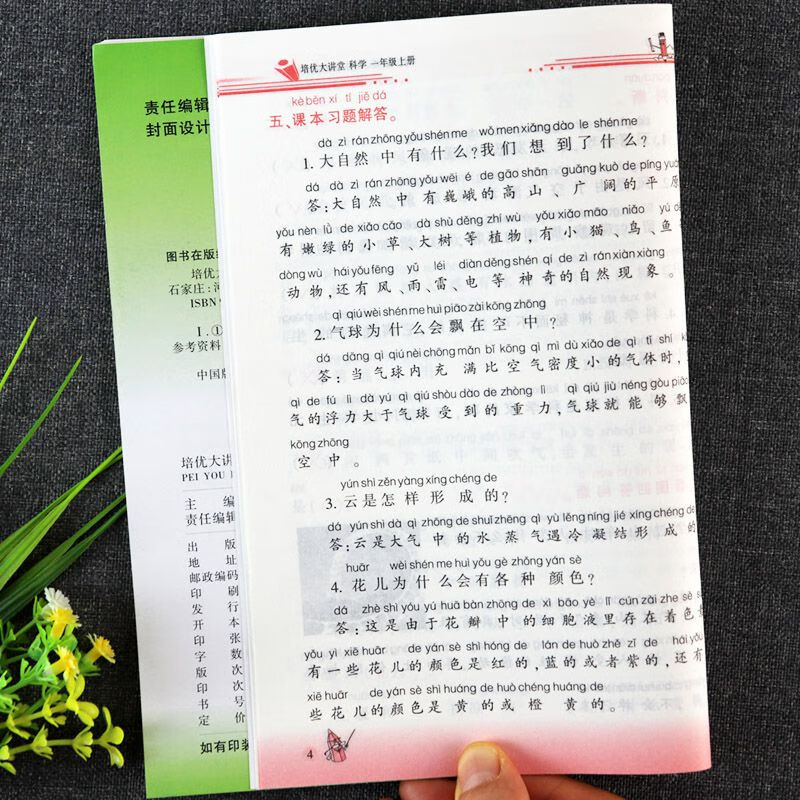 责任编辑
封面设计
图书在版编
培优大
石家庄:河
ISBN
Ⅰ.①
参考资料
中国版
培优大讲
PEI YOU
主 编
责任编辑
出 版
地 址
邮政编码
印 刷
发 行
开 本
印 张
字 数
版 次
印 次
书 号
定 价
如有印装
培优大讲堂 科学 一年级上册
kè běn xí tí jiě dá
五、课本习题解答。
dà zì rán zhōng yǒu shén me wǒ men xiǎng dào le shén me
1.大自然中有什么?我们想到了什么?
dá dà zì rán zhōng yǒu wēi é de gāo shān guǎng kuò de píng yuán
答:大自然中有巍峨的高山、广阔的平原
yǒu nèn lǜ de xiǎo cǎo dà shù děng zhí wù yǒu xiǎo māo niǎo yú
有嫩绿的小草、大树等植物,有小猫、鸟、鱼
dòng wù hái yǒu fēng yǔ léi diàn děng shén qí de zì rán xiàn xiàng
动物,还有风、雨、雷、电等神奇的自然现象。
qì qiú wèi shén me huì piāo zài kōng zhōng
2.气球为什么会飘在空中?
dá dāng qì qiú nèi chōng mǎn bǐ kōng qì mì dù xiǎo de qì tǐ shí
答:当气球内充满比空气密度小的气体时,
qì de fú lì dà yú qì qiú shòu dào de zhòng lì qì qiú jiù néng gòu piāo
气的浮力大于气球受到的重力,气球就能够飘
kōng zhōng
空中。
yún shì zěn yàng xíng chéng de
3.云是怎样形成的?
dá yún shì dà qì zhōng de shuǐ zhēng qì yù lěng níng jié xíng chéng de
答:云是大气中的水蒸气遇冷凝结形成的
huār wèi shén me huì yǒu gè zhǒng yán sè
4.花儿为什么会有各种颜色?
dá zhè shì yóu yú huā bàn zhōng de xì bāo yè lǐ cún zài zhe sè
答:这是由于花瓣中的细胞液里存在着色
yǒu yì xiē huār de yán sè shì hóng de lán de huò zhě zǐ de hái yǒu
有一些花儿的颜色是红的,蓝的或者紫的,还有
xiē huār de yán sè shì huáng de huò chéng huáng de
些花儿的颜色是黄的或橙黄的。
4